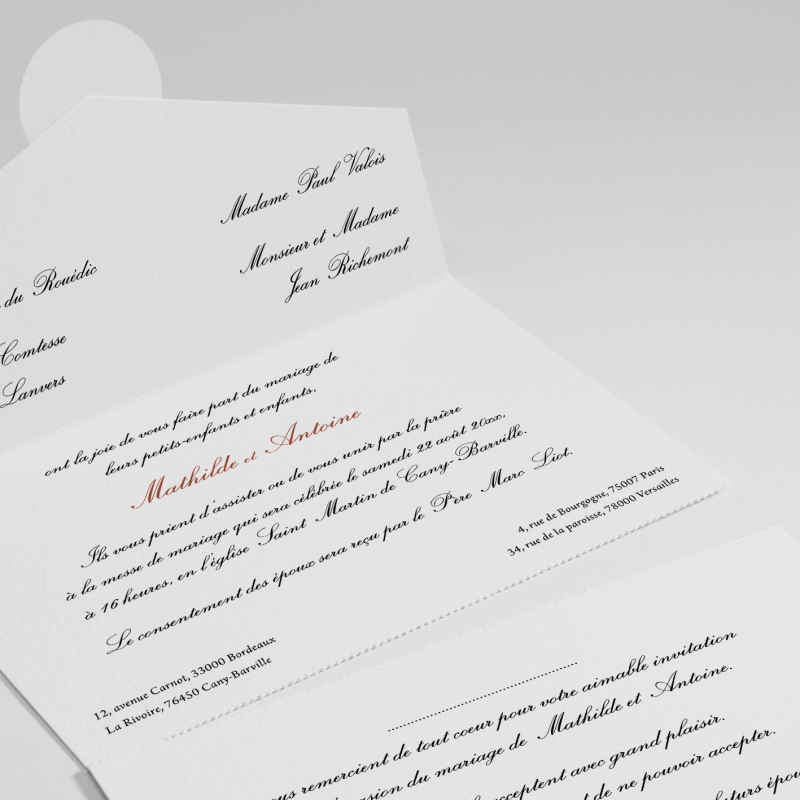 du Rouëdic
Comtesse
Lanvers
Madame Paul Valois
Monsieur et Madame
Jean Richemont
ont la joie de vous faire part du mariage de
leurs petits-enfants et enfants.
Mathilde et Antoine
Ils vous prient d'assister ou de vous unir par la prière
à la messe de mariage qui sera célébrée le samedi 22 août 20xx,
à 16 heures, en l'église Saint Martin de Cany-Barville.
Le consentement des époux sera reçu par le Père Marc Liot.
4, rue de Bourgogne, 75007 Paris
34, rue de la paroisse, 78000 Versailles
12, avenue Carnot, 33000 Bordeaux
La Rivoire, 76450 Cany-Barville
remercient de tout coeur pour votre aimable invitation
du mariage de Mathilde et Antoine.
acceptent avec grand plaisir.
de ne pouvoir accepter.